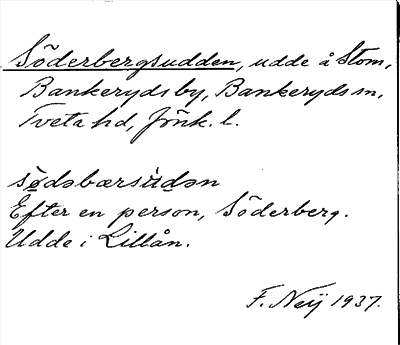 Söderbergsudden, udde å Stom,
Bankeryds by, Bankeryds sn,
Tveta hd, Jönk. l.
sødəbærsùdən
Efter en person, Söderberg.
Udde i Lillån.
F. Neij 1937.